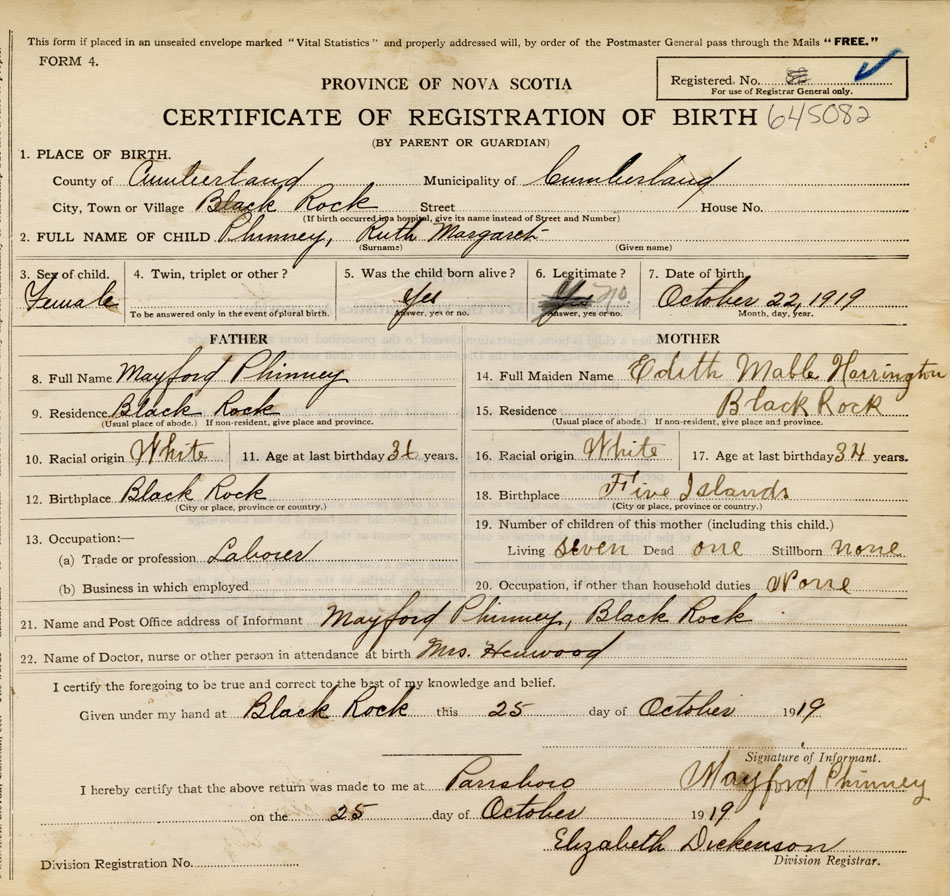 This form if placed in an unsealed envelope marked "Vital Statistics" and properly addressed will, by order of the Postmaster General pass through the Mails "FREE."
FORM 4.
Registered. No.
For use of Registrar General only.
PROVINCE OF NOVA SCOTIA
CERTIFICATE OF REGISTRATION OF BIRTH 645082
(BY PARENT OR GUARDIAN)
1. PLACE OF BIRTH.
County of Cumberland Municipality of Cumberland
City, Town or Village Black Rock Street House No.
(If birth occurred in a hospital, give its name instead of Street and Number)
2. FULL NAME OF CHILD Phinney, Ruth Margaret
(Surname) (Given name)
3. Sex of child. 4. Twin, triplet or other? 5. Was the child born alive? 6. Legitimate? 7. Date of birth
Female Yes Yes no. October 22, 1919
To be answered only in the event of plural birth. Answer, yes or no. Answer, yes or no. Month, day, year.
FATHER MOTHER
8. Full Name Mayford Phinney 14. Full Maiden Name Edith Mable Harrington
9. Residence Black Rock 15. Residence Black Rock
(Usual place of abode.) If non-resident, give place and province. (Usual place of abode.) If non-resident, give place and province.
10. Racial origin White 11. Age at last birthday years. 16. Racial origin White 17. Age at last birthday 34 years.
12. Birthplace Black Rock 18. Birthplace Five Islands
(City or place, province or country.) (City or place, province or country.)
13. Occupation:— 19. Number of children of this mother (including this child.)
(a) Trade or profession Laborer Living seven Dead one Stillborn none
(b) Business in which employed 20. Occupation, if other than household duties None
21. Name and Post Office address of Informant Mayford Phinney, Black Rock
22. Name of Doctor, nurse or other person in attendance at birth Mrs. Henwood
I certify the foregoing to be true and correct to the best of my knowledge and belief.
Given under my hand at Black Rock this 25 day of October 1919
Signature of Informant.
Mayford Phinney
I hereby certify that the above return was made to me at Parrsboro
on the 25 day of October 1919
Elizabeth Dickenson
Division Registration No. Division Registrar.